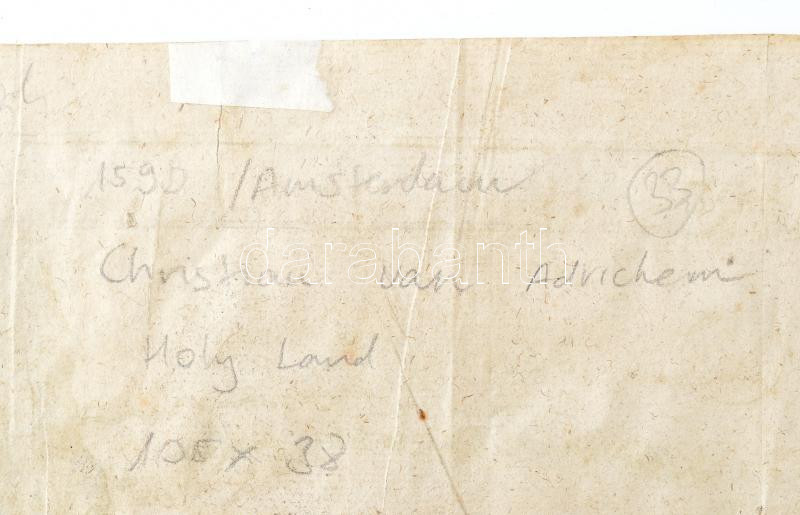 1590 /Amsterdam 33
Christian van Adrichem
Holy Land
105 x 38
darabanth